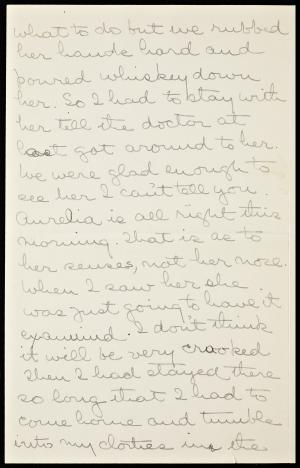 what to do but we rubbed
her hands hard and
poured whiskey down
her. So I had to stay with
her tell the doctor at
last got around to her.
We were glad enough to
see her I can't tell you.
Aurelia is all right this
morning. That is as to
her senses, not her nose.
When I saw her she
was just going to have it
examind. I don't think
it will be very crooked
Then I had stayed there
so long that I had to
come home and tumble
into my clothes in the